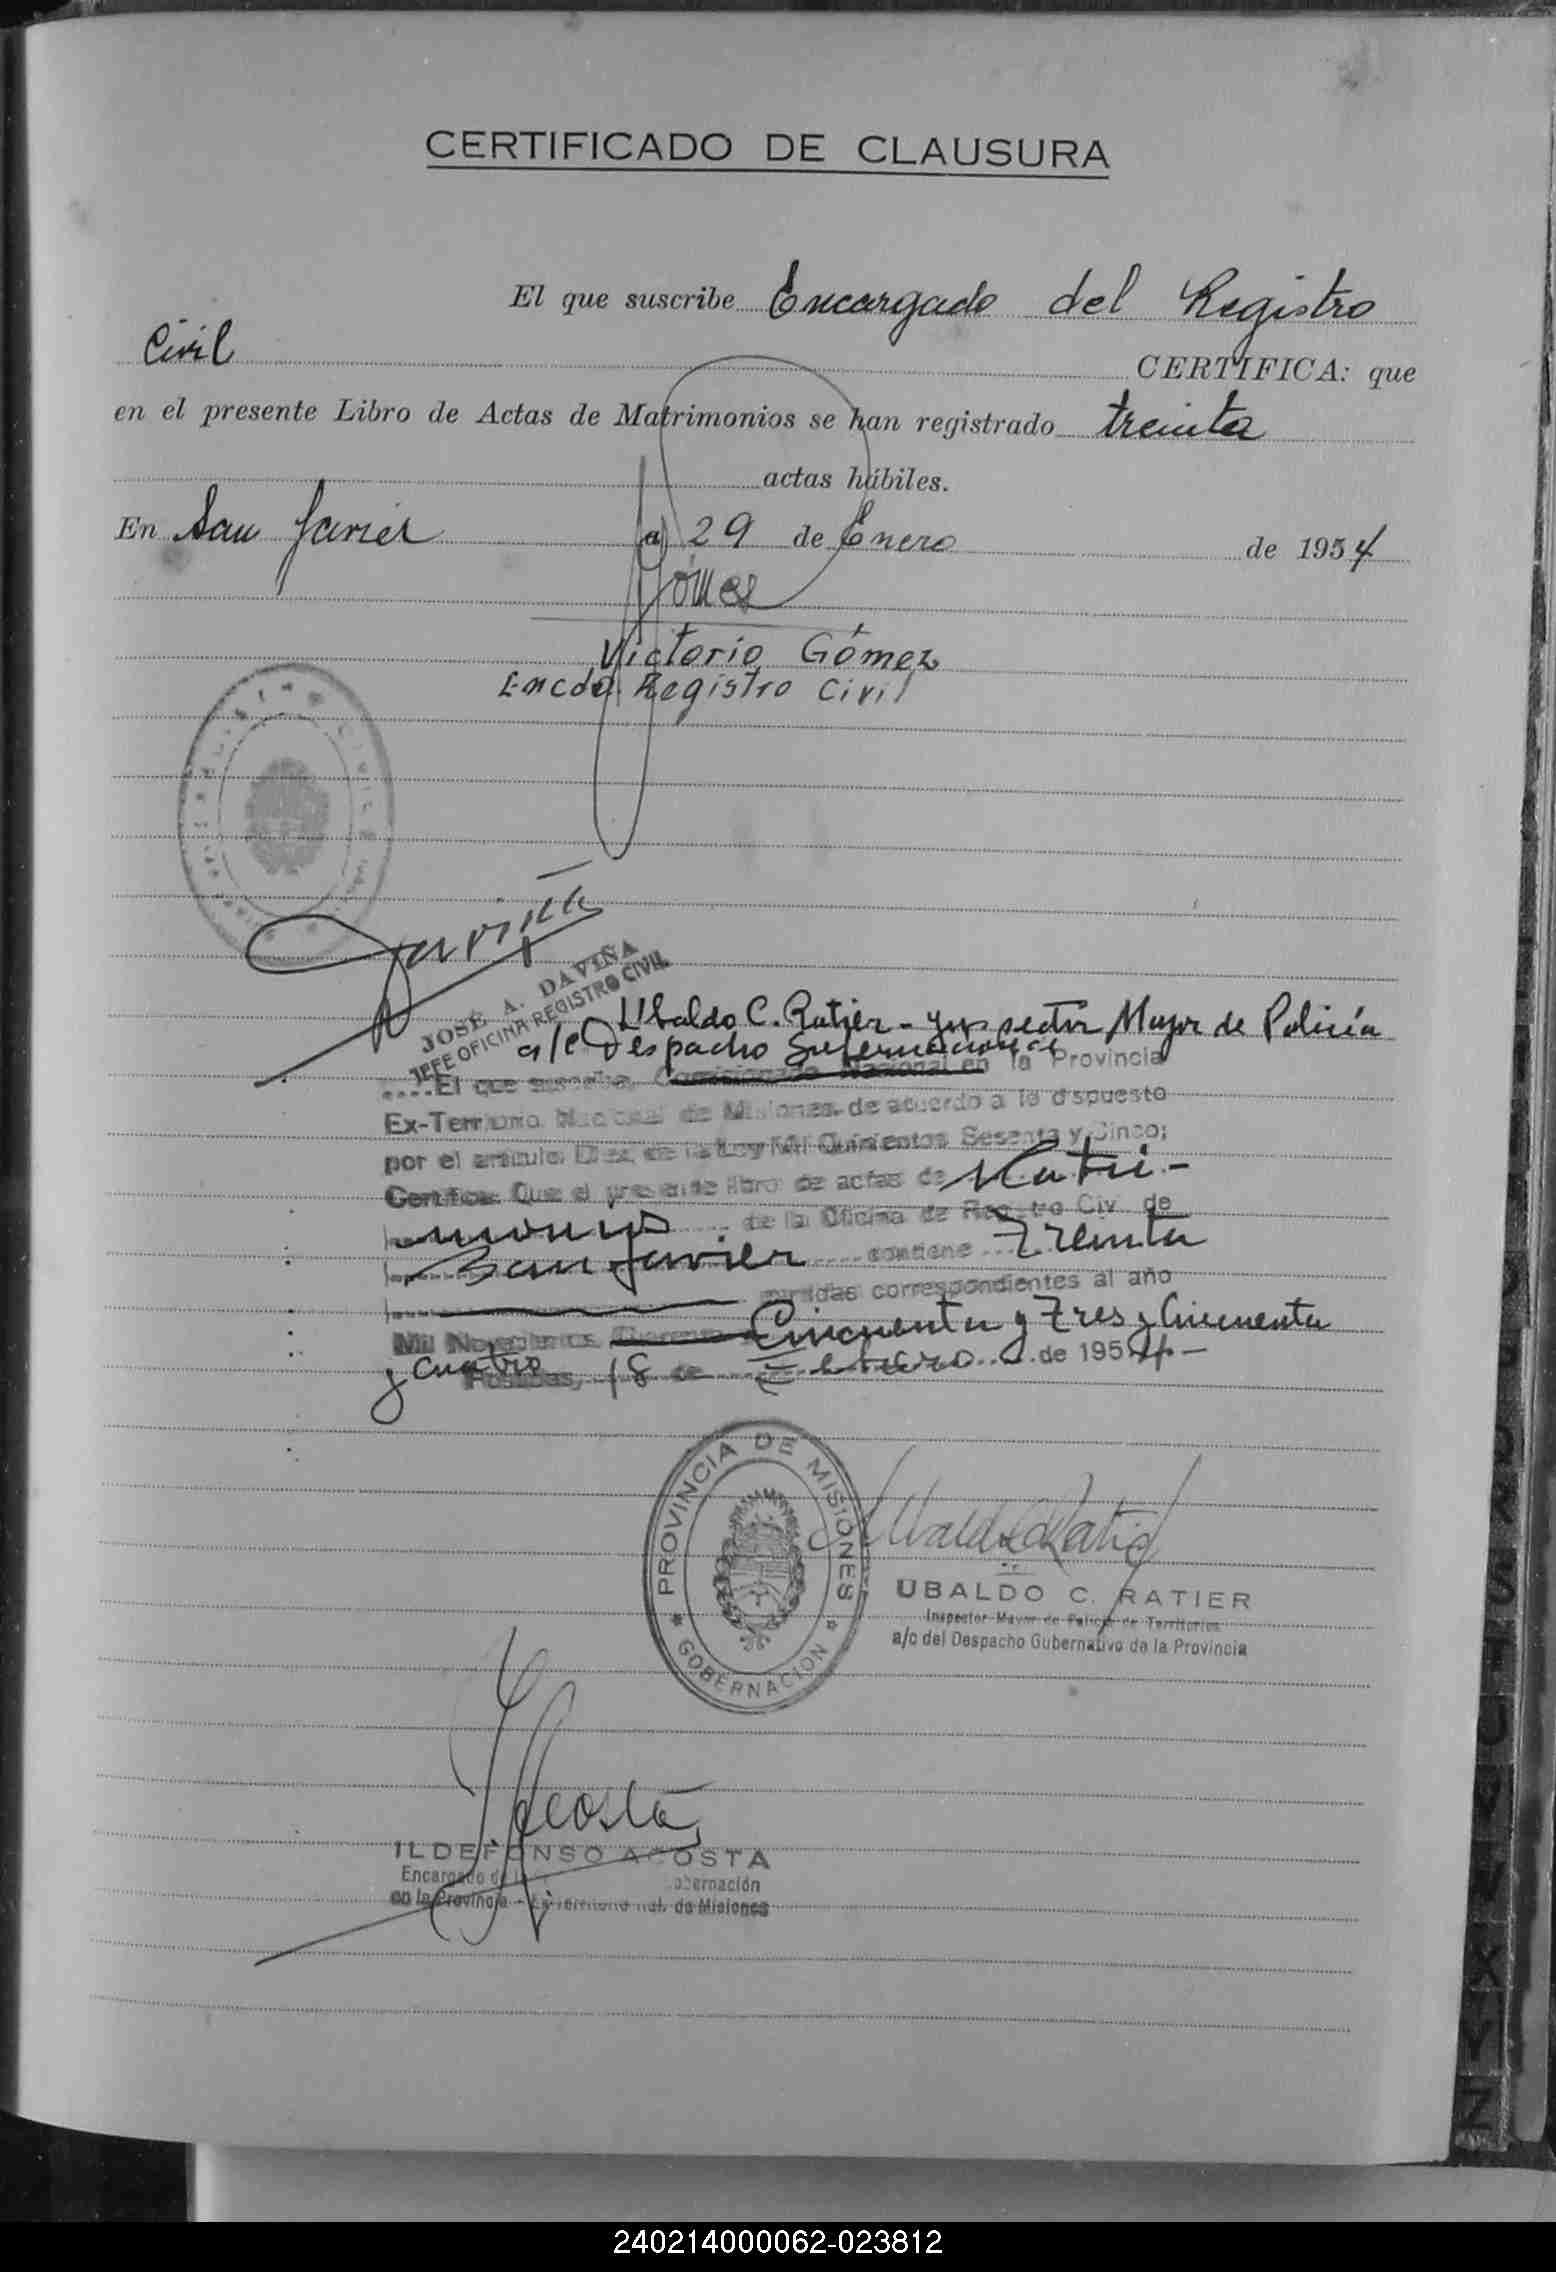 CERTIFICADO DE CLAUSURA
El que suscribe Encargado del Registro
Civil CERTIFICA: que
en el presente Libro de Actas de Matrimonios se han registrado treinta
actas hábiles.
En San Javier a 29 de Enero de 1954
Gómez
Victorio Gómez
Encdo. Registro Civil
Daviña
JOSÉ A. DAVIÑA
JEFE OFICINA REGISTRO CIVIL
Ubaldo C. Ratier - Inspector Mayor de Policía
a/c Despacho Gubernacion
....El que suscribe, Comisionado Nacional en la Provincia
Ex-Territorio Nacional de Misiones, de acuerdo a lo dispuesto
por el artículo Diez de la Ley Mil Quinientos Sesenta y Cinco;
Certifica: Que el presente libro de actas de Matri-
monios de la Oficina de Registro Civil de
San Javier contiene Treinta
partidas correspondientes al año
Mil Novecientos Cincuenta y Tres y Cincuenta
y cuatro
Posadas, 18 de Febrero de 1954-
PROVINCIA DE MISIONES
GOBERNACION
Ubaldo C Ratier
UBALDO C. RATIER
Inspector Mayor de Policía de Territorios
a/c del Despacho Gubernativo de la Provincia
Acosta
ILDEFONSO ACOSTA
Encargado de la
en la Provincia - Ex-Territorio Nal. de Misiones
O
Q
R
S
T
U
V
X
Y
Z
240214000062-023812